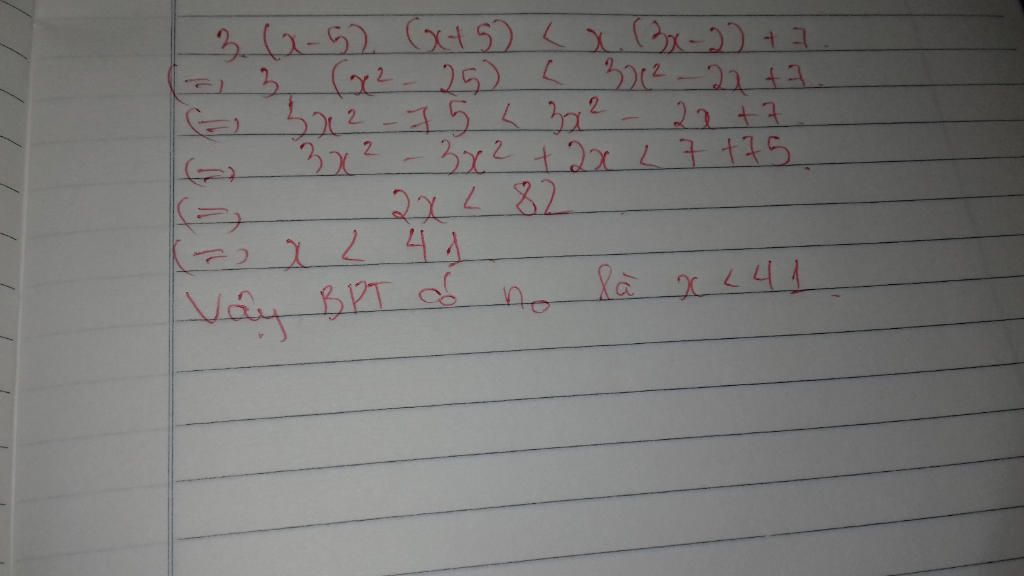 3. (x-5). (x+5) < x. (3x-2) + 7.
(=) 3. (x² - 25) < 3x² - 2x + 7.
(=) 3x² - 75 < 3x² - 2x + 7.
(=) 3x² - 3x² + 2x < 7 + 75.
(=) 2x < 82
(=) x < 41.
Vậy BPT có n₀ là x < 41.